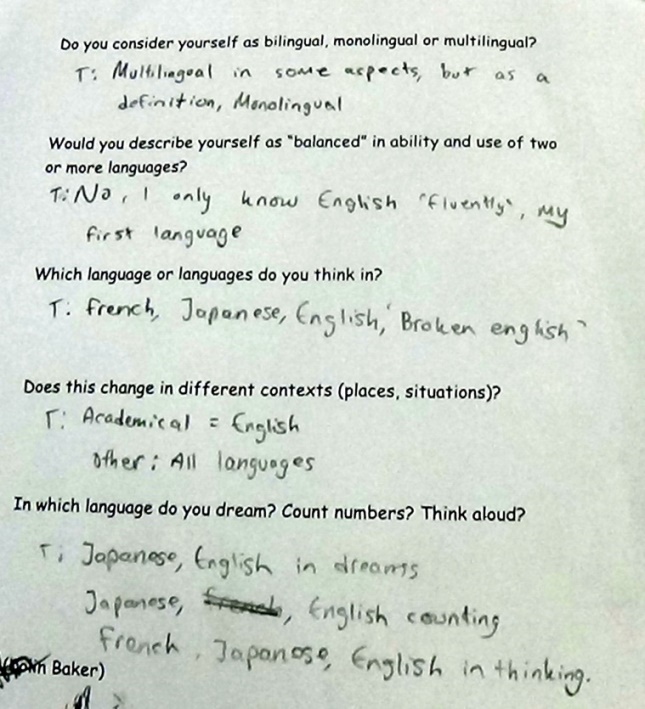 Do you consider yourself as bilingual, monolingual or multilingual?
T: Multilingual in some aspects, but as a
definition, Monolingual
Would you describe yourself as "balanced" in ability and use of two
or more languages?
T: No, I only know English "fluently", my
first language
Which language or languages do you think in?
T: French, Japanese, English, "Broken english"
Does this change in different contexts (places, situations)?
T: Academical = English
other: All languages
In which language do you dream? Count numbers? Think aloud?
T: Japanese, English in dreams
Japanese, French, English counting
French, Japanese, English in thinking.
Baker)